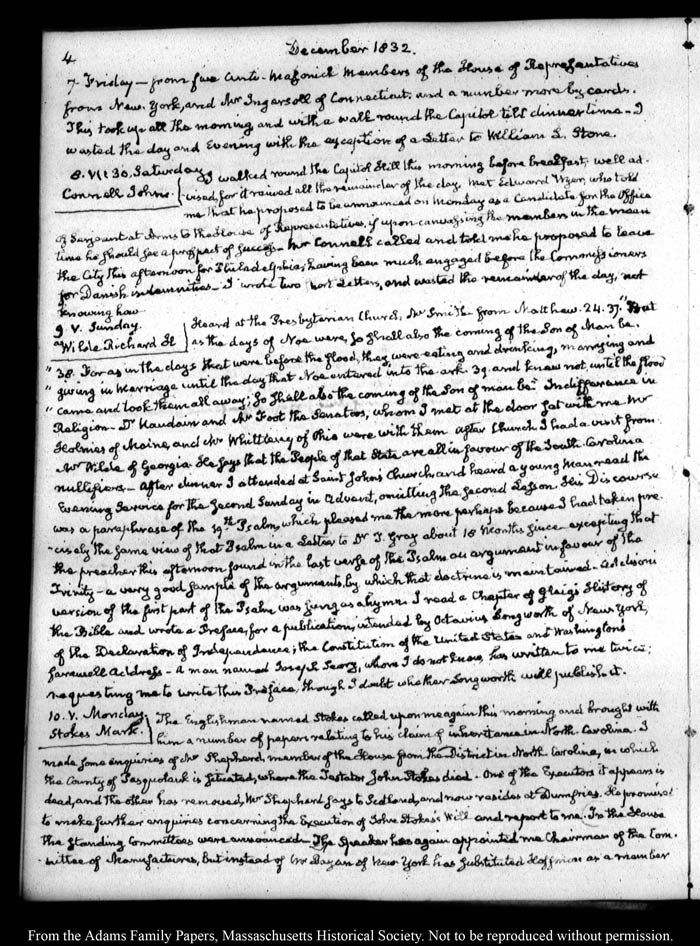 4
December 1832.
7. Friday — from five Anti-Masonick Members of the House of Representatives
from New-York, and Mr Ingersoll of Connecticut, and a number more by cards.
This took up all the morning and with a walk round the Capitol till dinner time — I
wasted the day and Evening with the exception of a Letter to William L. Stone.
8. VI: 30. Saturday. I walked round the Capitol Hill this morning before breakfast, well ad-
Connell Johns. vised, for it rained all the remainder of the day. Met Edward Wyer, who told
me that he proposed to be announced on Monday as a Candidate for the Office
of Serjeant at Arms to the House of Representatives, if upon canvassing the members in the mean
time he should see a prospect of success. Mr Connell called and told me he proposed to leave
the City this afternoon for Philadelphia; having been much engaged before the Commissioners
for Danish indemnities — I wrote two short Letters, and wasted the remainder of the day, not
knowing how
9. V. Sunday. Heard at the Presbyterian Church, Mr Smith from Matthew. 24. 37. "But
Wilde Richard H as the days of Noe were, so shall also the coming of the Son of Man be.
" 38. For as in the days that were before the flood, they were eating and drinking, marrying and
" giving in marriage until the day that Noe entered into the ark 39. and knew not, until the flood
" came and took them all away; so shall also the coming of the Son of man be." Indifference in
Religion — Dr Naudain and Mr Foot the Senators, whom I met at the door sat with me. Mr
Holmes of Maine, and Mr Whittlesey of Ohio were with them. After Church I had a visit from
Mr Wilde of Georgia. He says that the People of that State are all in favour of the South-Carolina
nullifiers — After dinner I attended at Saint John's Church and heard a young Man read the
Evening Service for the second Sunday in Advent, omitting the second Lesson. His Discourse
was a paraphrase of the 19th Psalm, which pleased me the more perhaps because I had taken pre-
-cisely the same view of that Psalm in a Letter to Dr F. Gray about 18 Months since excepting that
the preacher this afternoon found in the last verse of the Psalm an argument in favour of the
Trinity — a very good sample of the arguments, by which that doctrine is maintained — Addison's
version of the first part of the Psalm was sung as a hymn. I read a Chapter of Gleig's History of
the Bible and wrote a Preface, for a publication, intended by Octavius Longworth of New York,
of the Declaration of Independence; the Constitution of the United States and Washington's
farewell Address — A man named Joseph, whom I do not know, has written to me twice;
requesting me to write this Preface, though I doubt whether Longworth will publish it.
10. V. Monday. The Englishman named Stokes called upon me again this morning and brought with
Stokes Mark. him a number of papers relating to his claim of inheritance in North-Carolina. I
made some enquiries of Mr Shepherd, member of the House from the District in North Carolina, in which
the County of Pasquotank is situated, where the Testator John Stokes died. One of the Executors it appears is
dead, and the other has removed, Mr Shepherd says to Scotland, and now resides at Dumfries. He promised
to make further enquiries concerning the Execution of John Stokes's Will and report to me. In the House
the standing Committees were announced — The Speaker has again appointed me Chairman of the Com-
mittee of Manufactures, but instead of Mr Dayan of New York has substituted Hoffman as a member
From the Adams Family Papers, Massachusetts Historical Society. Not to be reproduced without permission.